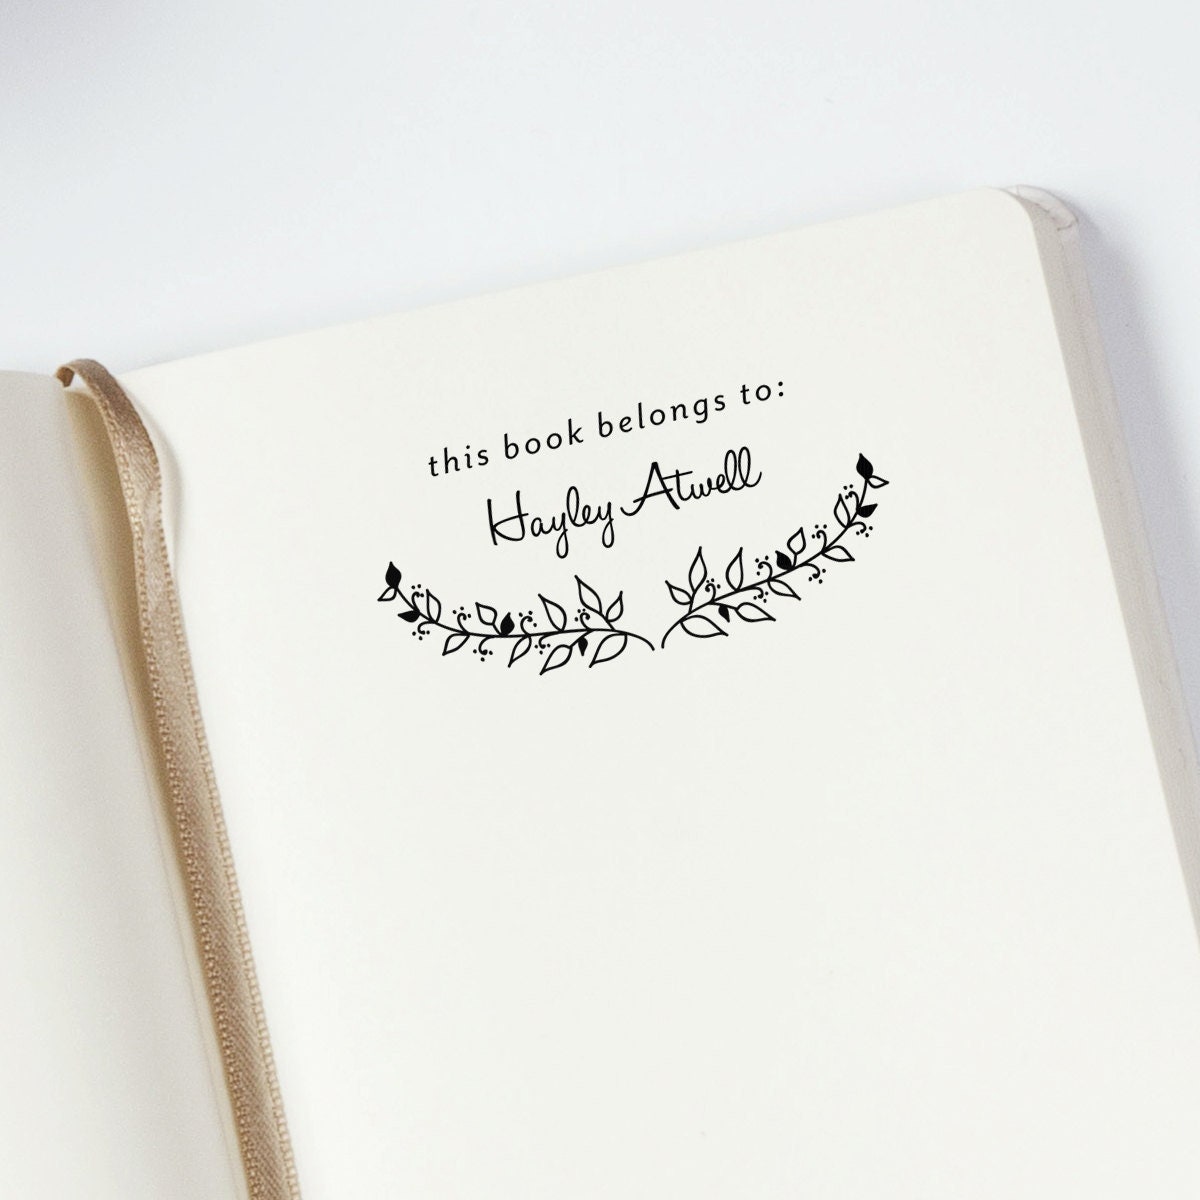 this book belongs to:
Hayley Atwell